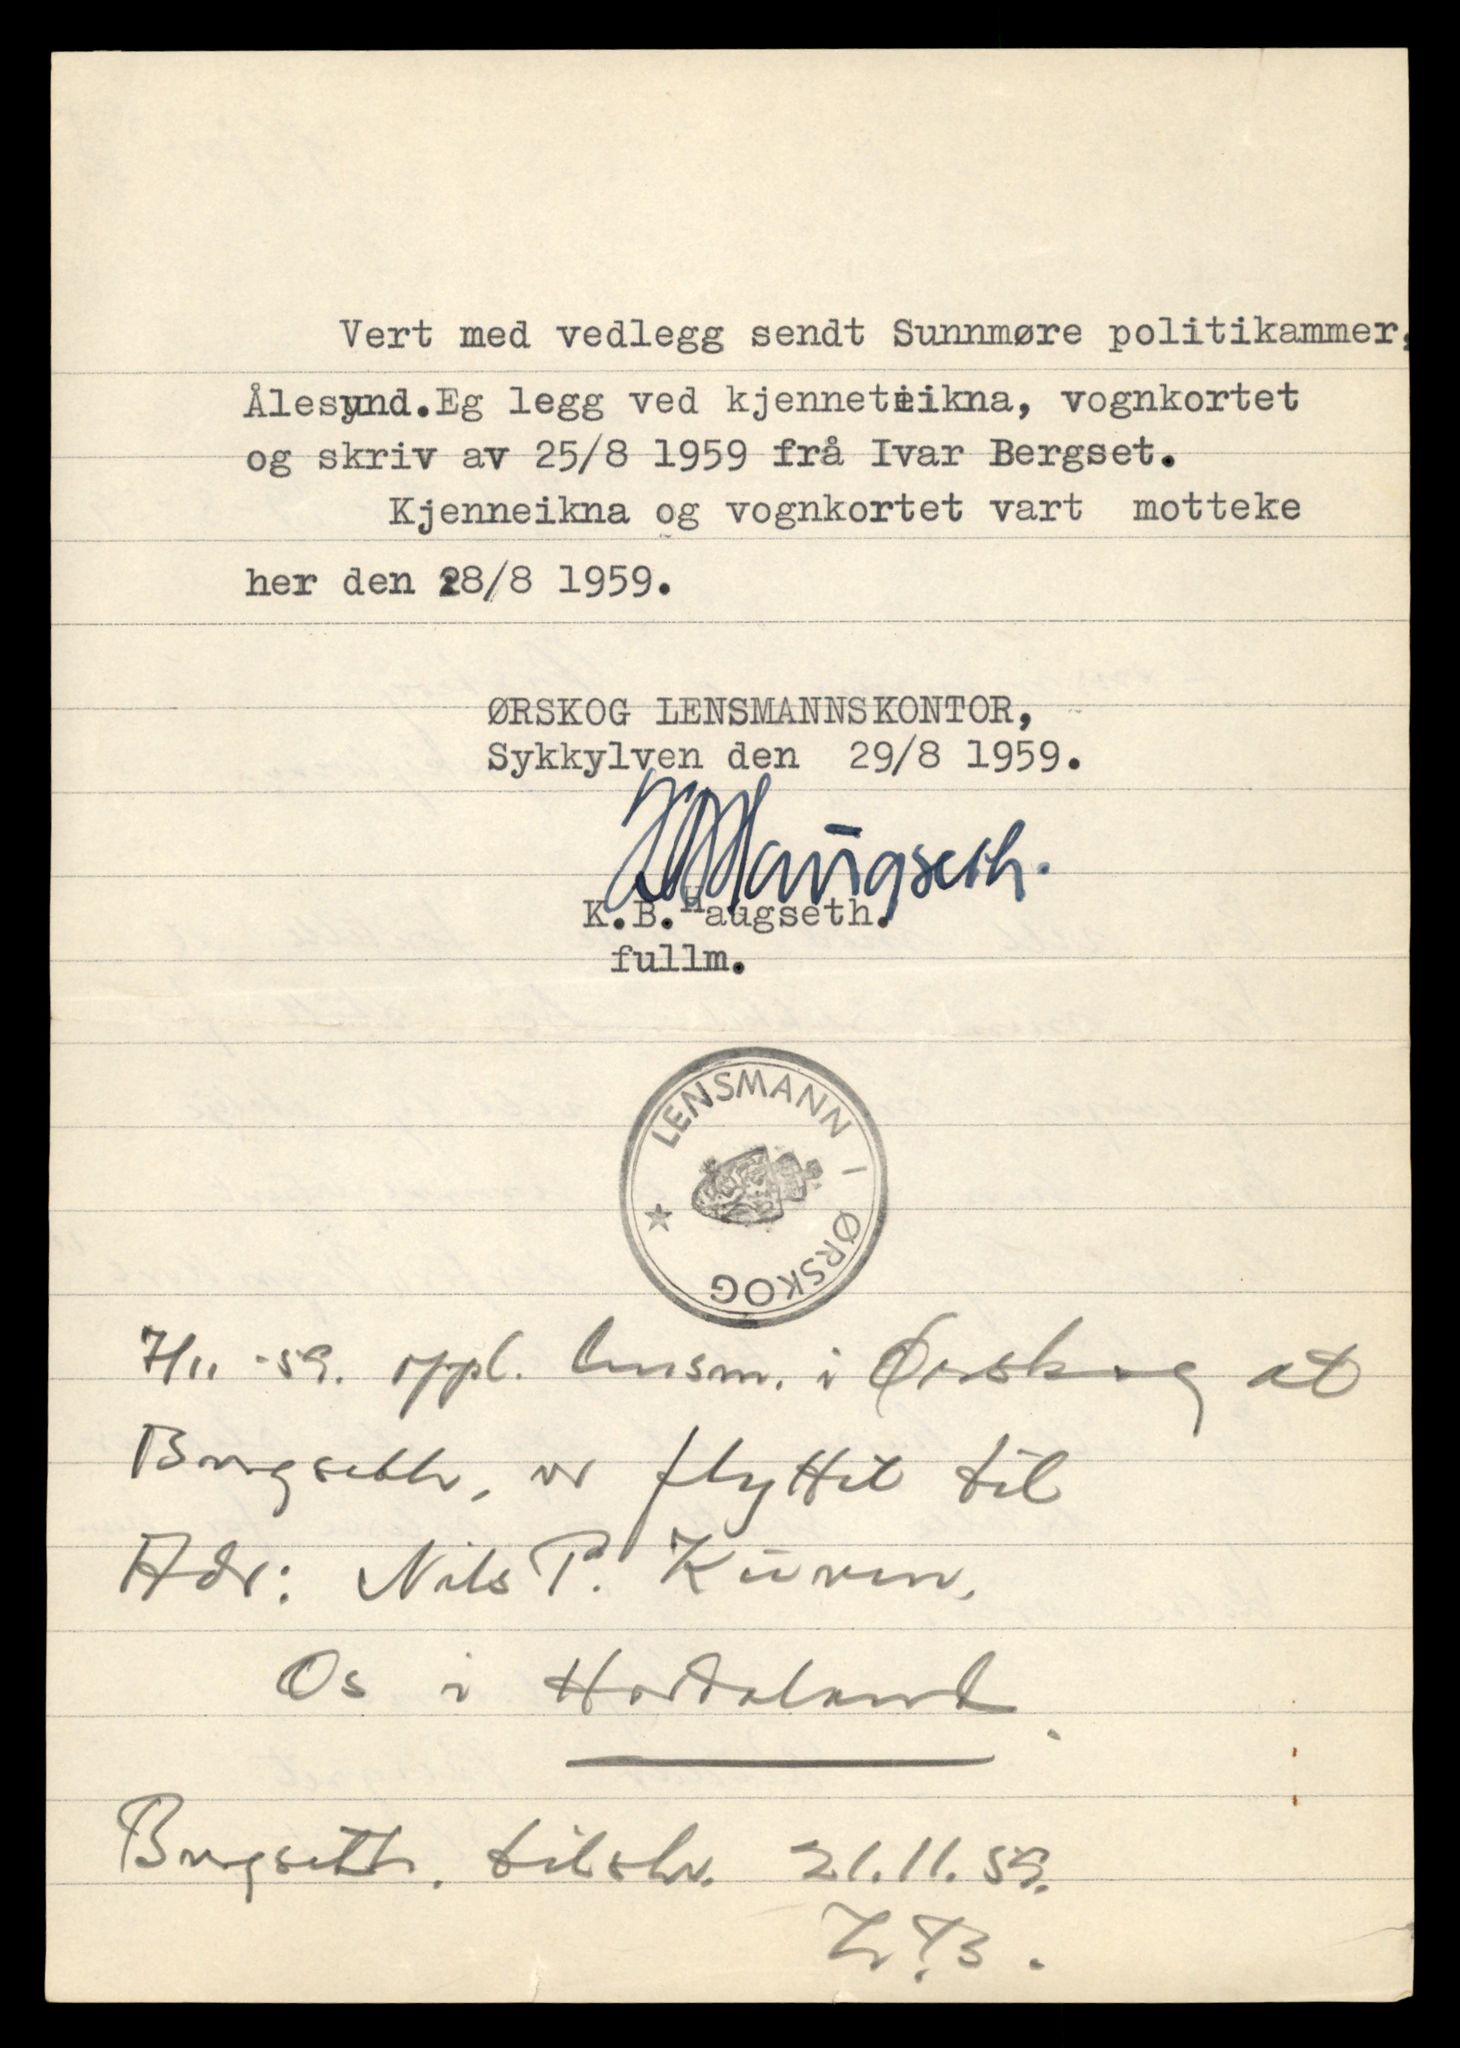 Vert med vedlegg sendt Sunnmøre politikammer,
Ålesund. Eg legg ved kjenneteikna, vognkortet
og skriv av 25/8 1959 frå Ivar Bergset.
Kjenneikna og vognkortet vart motteke
her den 28/8 1959.
ØRSKOG LENSMANNSKONTOR,
Sykkylven den 29/8 1959.
KBHaugseth.
K.B. Haugseth.
fullm.
LENSMANN I ØRSKOG
7/11-59. oppl. lensm. i Ørskog at
Bergseth, er flyttet til
Adr: Nils P. Kuven,
Os i Hordaland.
Bergseth. tilskr. 21.11.59.